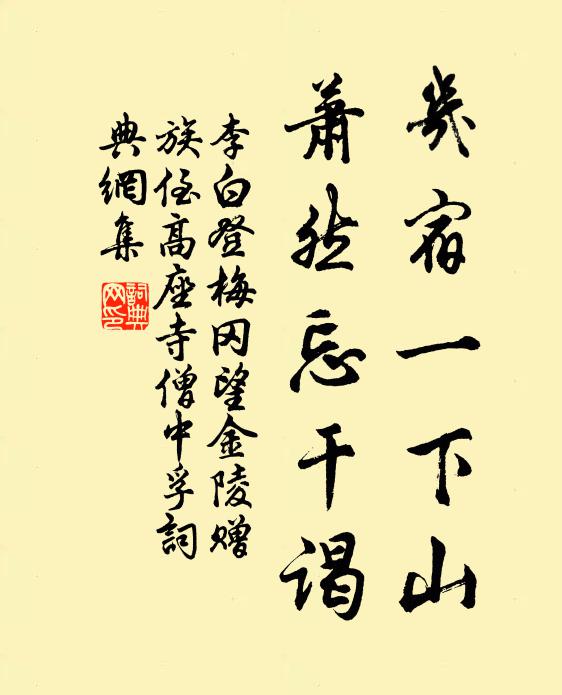 幾宿一下山
蕭然忘干謁
李白登梅冈望金陵赠
族侄高座寺僧中孚詞
典網集
詞典
网印